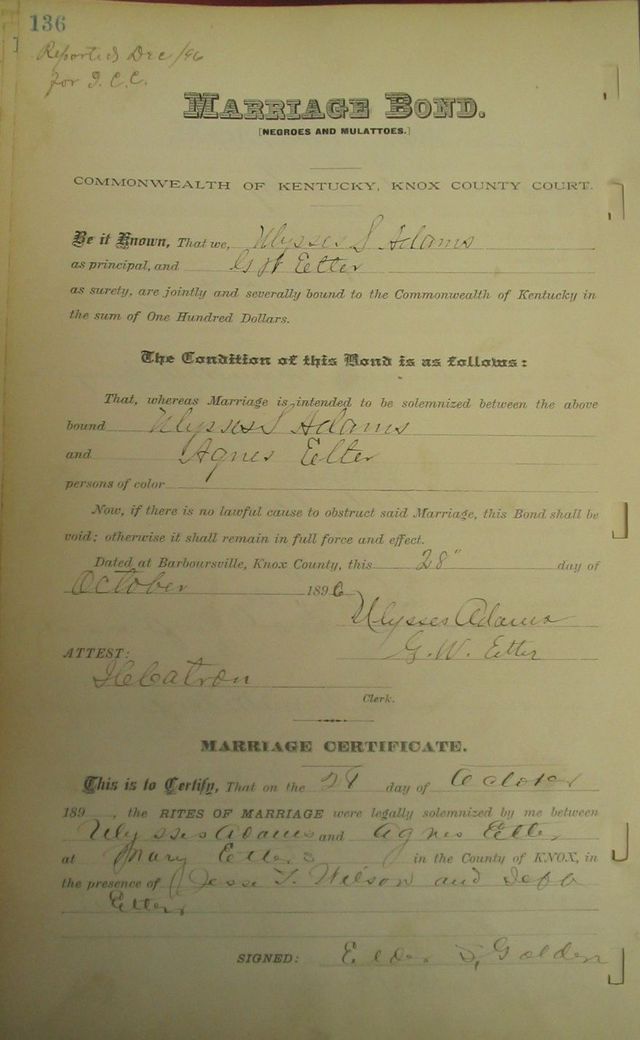 136
Reported Dec /96
for I. C. C.
MARRIAGE BOND.
[NEGROES AND MULATTOES.]
COMMONWEALTH OF KENTUCKY, KNOX COUNTY COURT.
Be it Known, That we, Ulysses S Adams
as principal, and G W Etter
as surety, are jointly and severally bound to the Commonwealth of Kentucky in
the sum of One Hundred Dollars.
The Condition of this Bond is as follows:
That, whereas Marriage is intended to be solemnized between the above
bound Ulysses S Adams
and Agnes Etter
persons of color
Now, if there is no lawful cause to obstruct said Marriage, this Bond shall be
void; otherwise it shall remain in full force and effect.
Dated at Barboursville, Knox County, this 28" day of
October 1896
Ulysses Adams
ATTEST: G. W. Etter
Catron
Clerk.
MARRIAGE CERTIFICATE.
This is to Certify, That on the day of October
189 , the RITES OF MARRIAGE were legally solemnized by me between
Ulysses Adams and Agnes Etter
at Mary Etters in the County of KNOX, in
the presence of Jesse T. Wilson and Jeff
Etter
SIGNED: Elder S, Golden